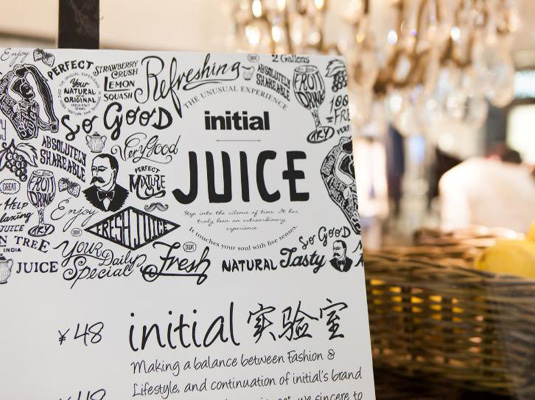 Enjoy
PERFECT
STRAWBERRY
CRUSH
LEMON
SQUASH
Refreshing
2 Gallons
ABSOLUTELY
SHAREABLE
FRUIT
DRINK
Your
NATURAL
and
ORIGINAL
So GooD
THE UNUSUAL EXPERIENCE
initial
JUICE
Step into the silence of time. It has
truly been an extraordinary
experience.
It touches your soul with five senses.
100
FRE
DRY
ABSOLUTELY
SHAREABLE
Very Good
PERFECT
MIXTURE
GREAT
FRUIT
DRINK
DRY
Enjoy
FRESH JUICE
JUICE
N TREE
INDIA
JUICE
Your
Daily
Special
Fresh
NATURAL Tasty
So GooD
¥48
initial 实验室
Making a balance between Fashion &
Lifestyle, and continuation of initial's brand
we sincere to
¥48